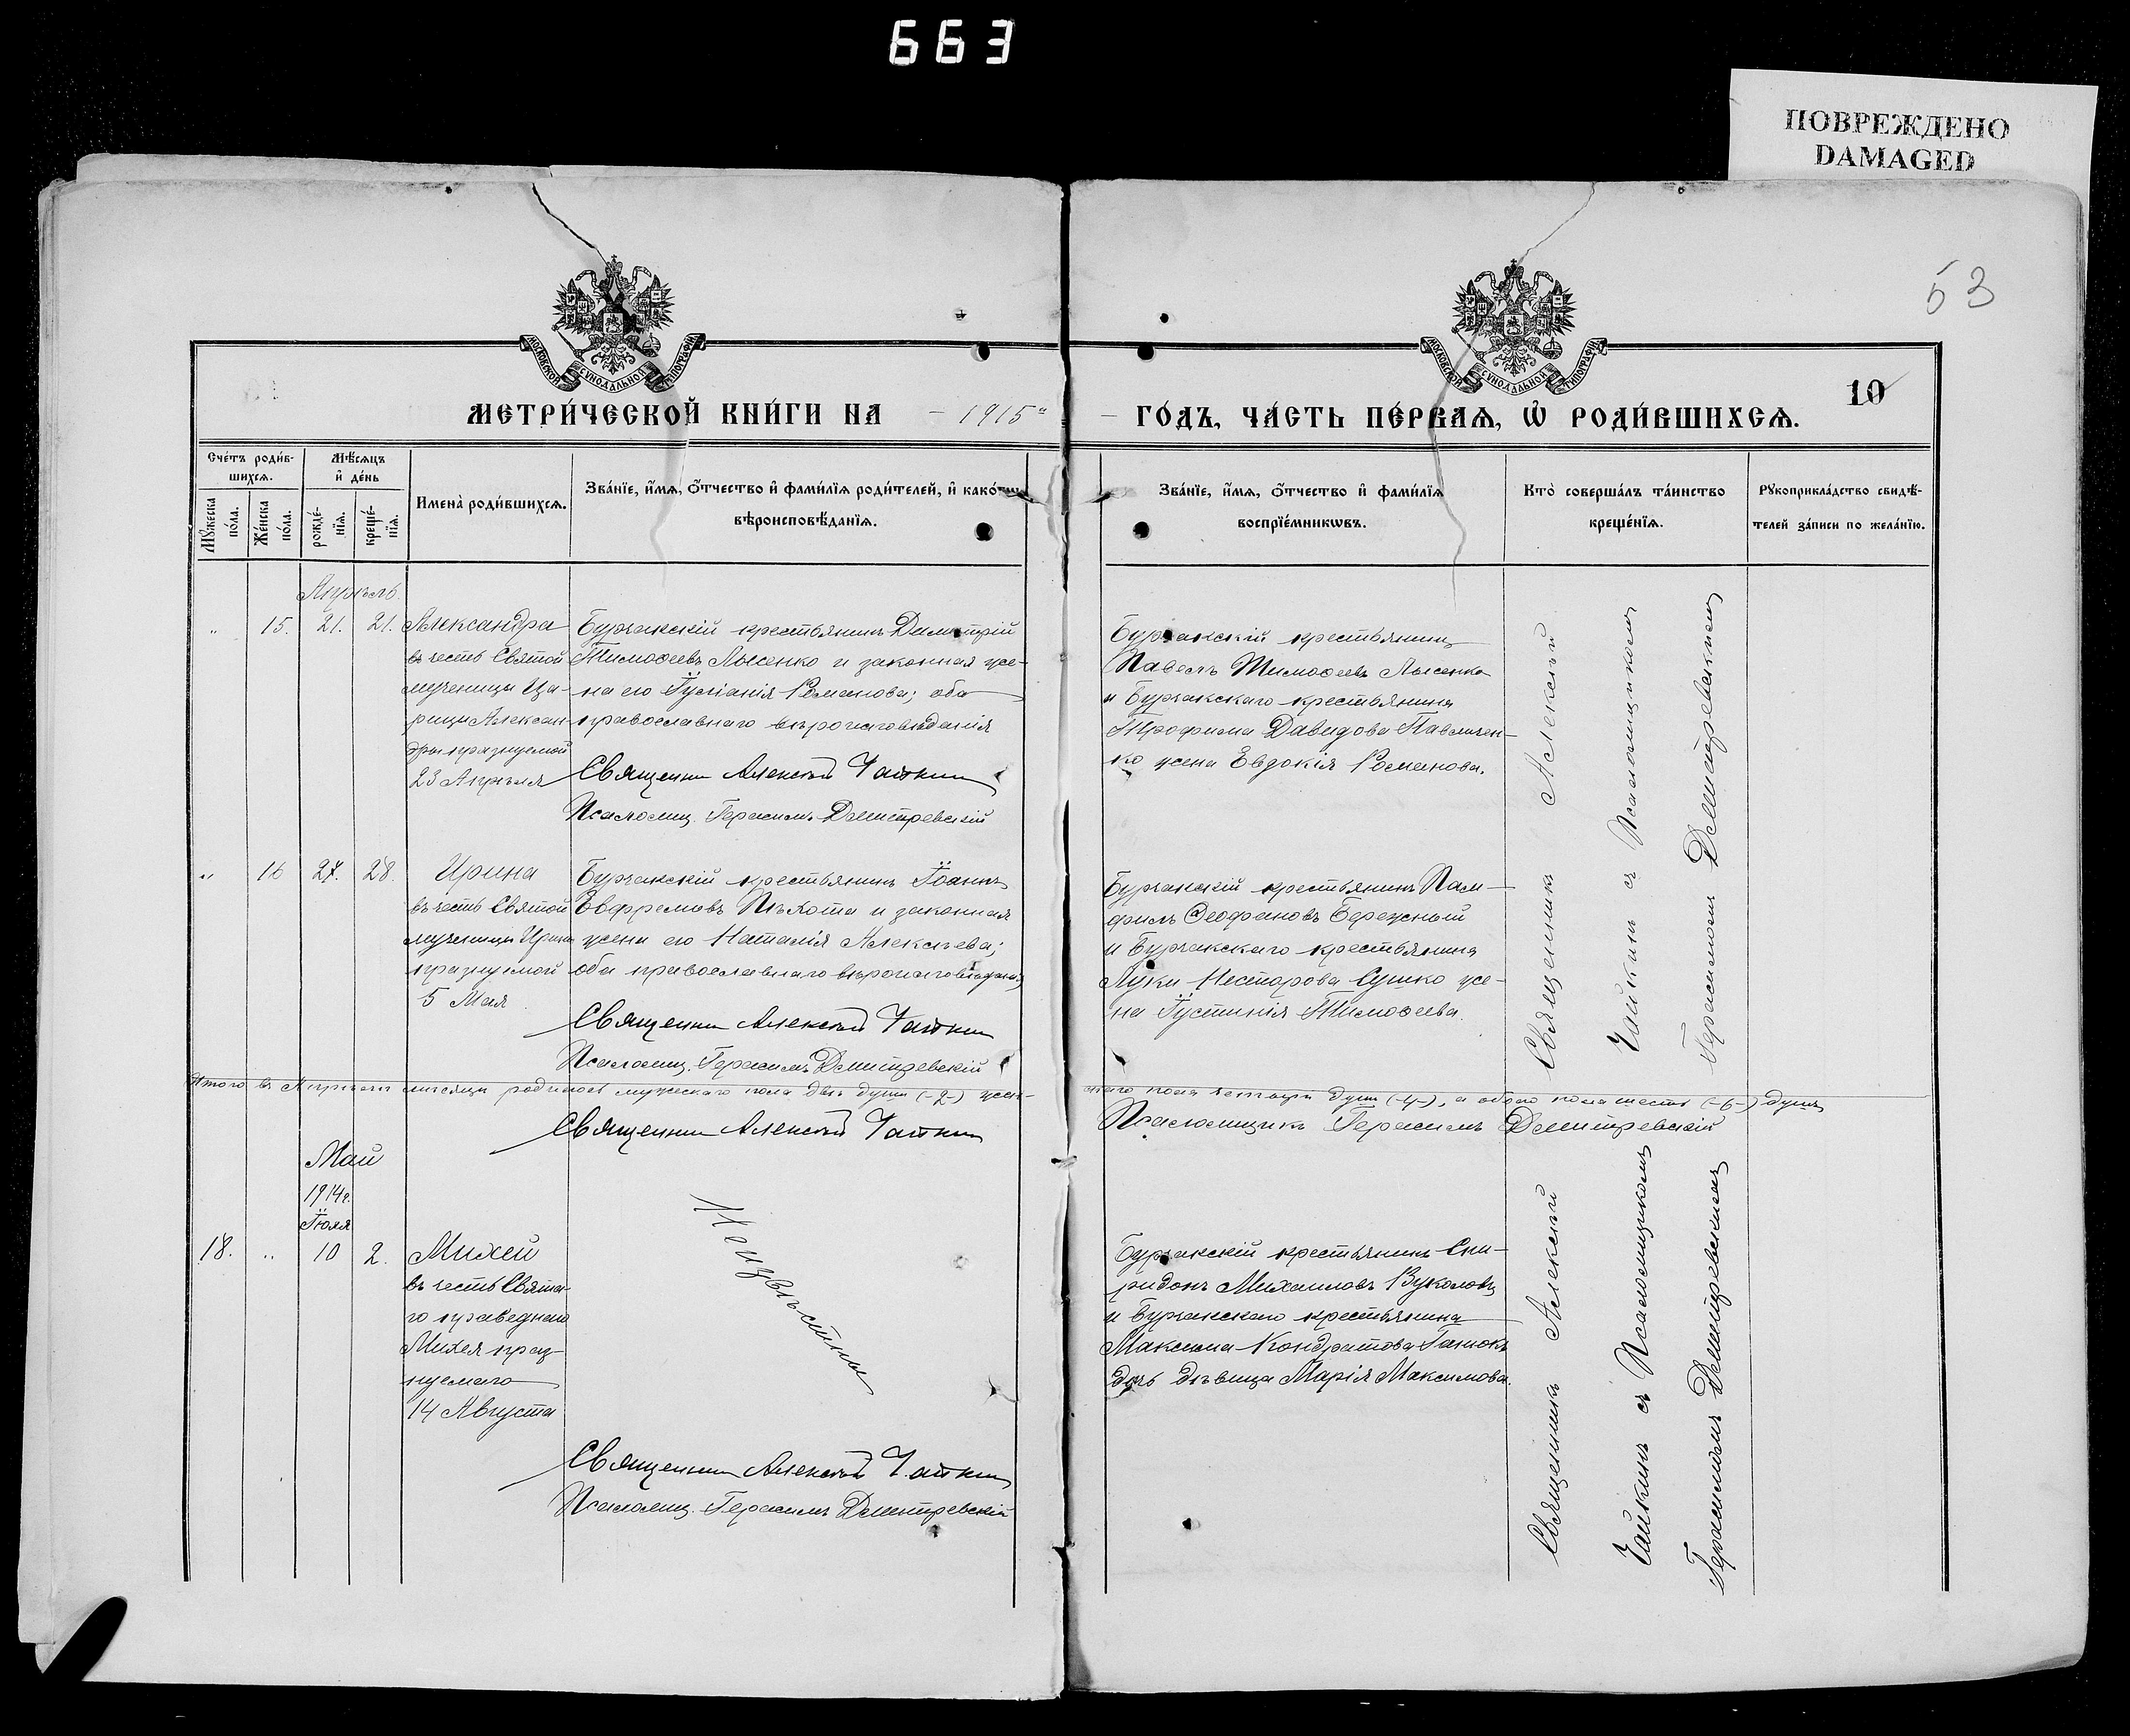 663
ПОВРЕЖДЕНО
DAMAGED
53
МОСКОВСКОЙ СѴНОДАЛЬНОЙ ТИПОГРАФІИ
МОСКОВСКОЙ СѴНОДАЛЬНОЙ ТИПОГРАФІИ
10
МЕТРИ́ЧЕСКОЙ КНИ́ГИ НА - 1915 - ГО́ДЪ, ЧА́СТЬ ПЕ́РВАѦ, Ѡ҆ РОДИ́ВШИХСѦ.
Сче́тъ роди́в-
шихсѧ.
Мѣ́сѧцъ
и҆ де́нь
Мꙋ́жеска
по́ла.
Же́нска
по́ла.
рожде́-
нїѧ.
креще́-
нїѧ.
Имена̀ роди́вшихсѧ.
Зва́нїе, и҆́мѧ, ѻ҆́тчество и҆ фами́лїѧ роди́телей, и҆ како́гѡ
вѣроисповѣ́данїѧ.
Зва́нїе, и҆́мѧ, ѻ҆́тчество и҆ фами́лїѧ
воспрїе́мникѡвъ.
Кто̀ соверша́лъ та́инство
креще́нїѧ.
Рꙋкоприкла́дство свидѣ́-
телей за́писи по жела́нїю.
Апрѣль
" 15. 21. 21.
Александра
въ честь Святой
мученицы Ца-
рицы Алексан-
дры празнуемой
23 Апрѣля
Бурчакскій крестьянинъ Димитрій
Тимоѳеевъ Лысенко и законная же-
на его Іуліанія Романова; оба
православнаго вѣроисповѣданія
Священник Алексѣй Чайкин
Псаломщ. Герасимъ Дмитревскій
Бурчакскій крестьянинъ
Павелъ Тимоѳеевъ Лысенко
и Бурчакскаго крестьянина
Трофима Давидова Павличен-
ко жена Евдокія Романова.
Священникъ Алексѣй
Чайкинъ съ Псаломщикомъ
Герасимомъ Дмитревскимъ
" 16 27. 28.
Ирина
въ честь Святой
мученицы Ирины
празнуемой
5 Мая
Бурчакскій крестьянинъ Іоаннъ
Евфремовъ Пѣхота и законная
жена его Наталія Алексѣева;
оба православнаго вѣроисповѣданія
Священник Алексѣй Чайкин
Псаломщ. Герасимъ Дмитревскій
Бурчакскій крестьянинъ Пам-
филъ Ѳеофановъ Бережный
и Бурчакскаго крестьянина
Луки Несторова Сушко же-
на Іустинія Тимоѳеева.
Итого въ Апрѣлѣ мѣсяцѣ родилось мужескаго пола двѣ души (-2-) жен-
скаго пола четыре души (-4-), а обоего пола шесть (-6-) душъ
Священник Алексѣй Чайкин
Псаломщикъ Герасимъ Дмитревскій
Май
1914г.
Іюля
18. " 10 2.
Михей
въ честь Свята-
го праведнаго
Михея праз-
нуемаго
14 Августа
Неизвѣстны
Священник Алексѣй Чайкин
Псаломщ. Герасимъ Дмитревскій
Бурчакскій крестьянинъ Спи-
ридонъ Михаиловъ Вуколовъ
и Бурчакскаго крестьянина
Максима Кондратова Ганюкъ
дочь дѣвица Марія Максимова.
Священникъ Алексѣй
Чайкинъ съ Псаломщикомъ
Герасимомъ Дмитревскимъ